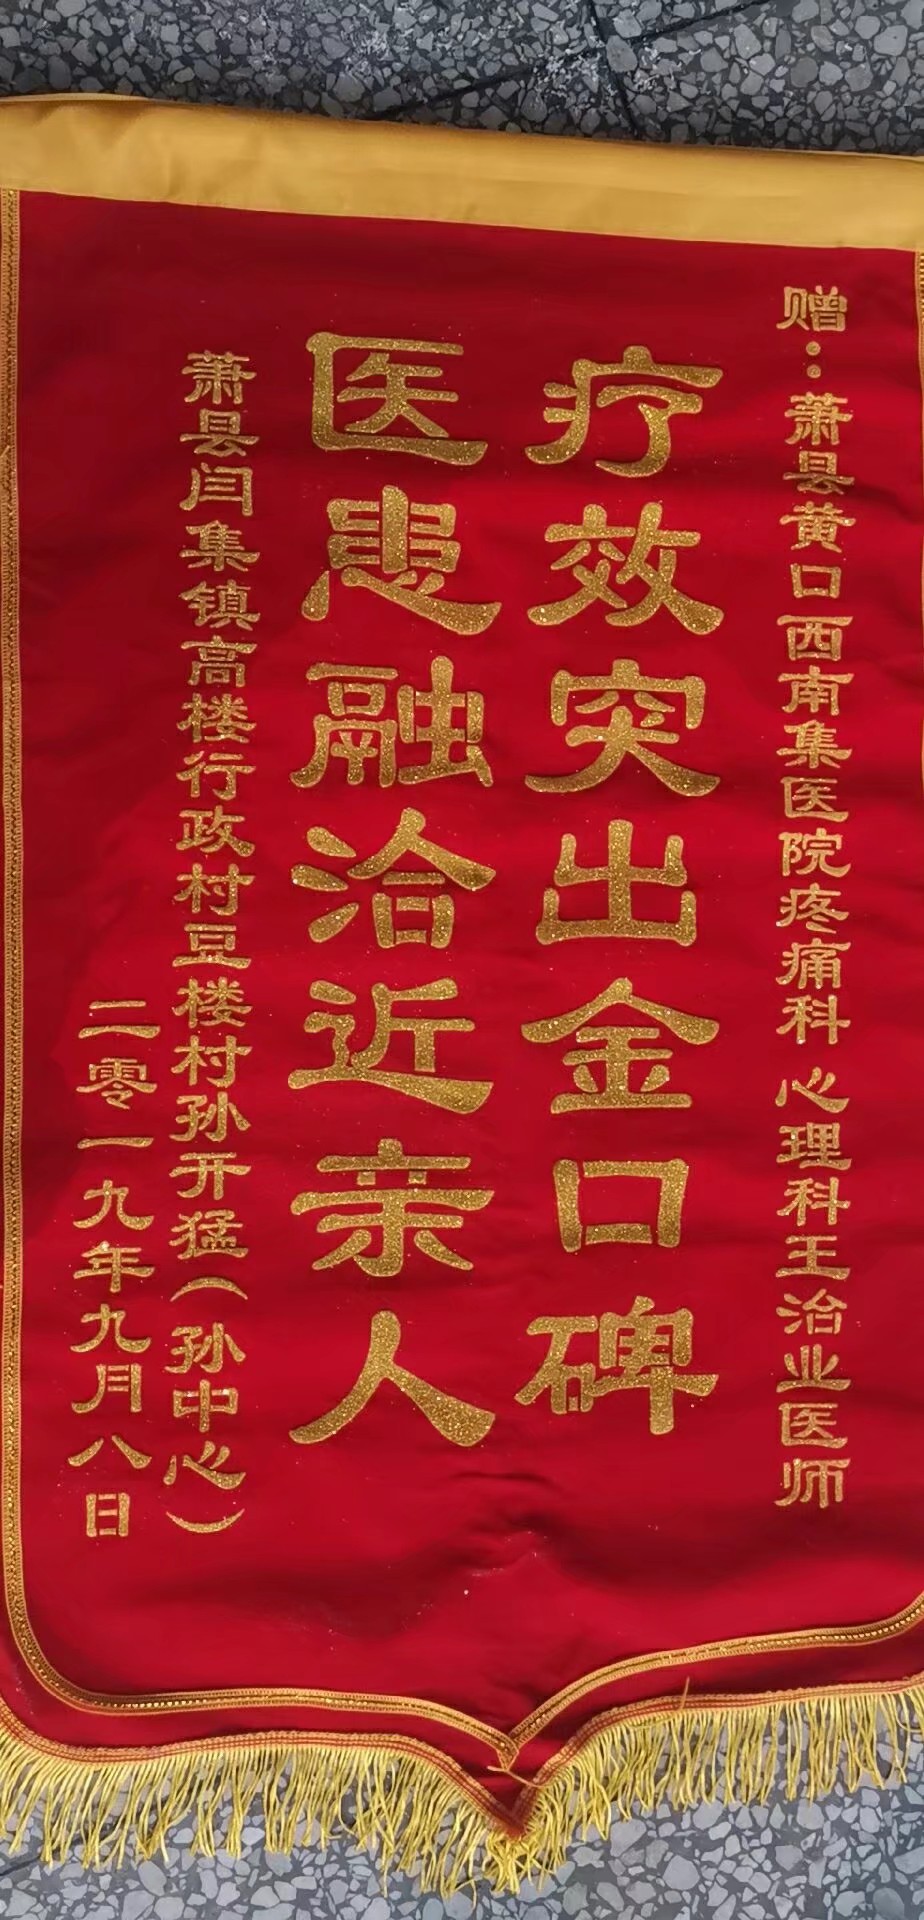 赠：萧县黄口西南集医院疼痛科 心理科王治业医师
疗效突出金口碑
医患融洽近亲人
萧县闫集镇高楼行政村豆楼村孙开猛（孙中心）
二零一九年九月八日